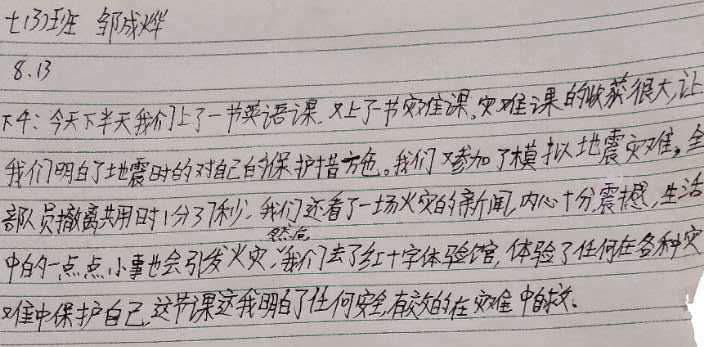 七(3)班 邹成烨
8.13
下午:今天下半天我们上了一节英语课.又上了节灾难课。灾难课的收获很大,让
我们明白了地震时的对自己的保护措施。我们又参加了模拟地震灾难。全
部队员撤离共用时1分37秒.我们还看了一场火灾的新闻,内心十分震撼,生活
中的一点点小事也会引发火灾.然后我们去了红十字体验馆,体验了任何在各种灾
难中保护自己.这节课还我明白了任何安全,有效的在灾难中自救.